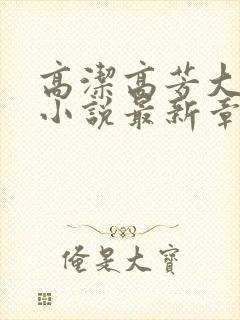 高潔高芳大
小說最新章
俺是大寶